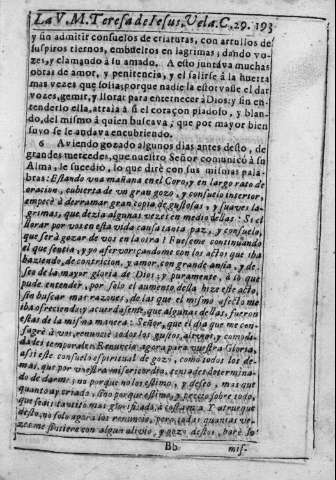 La V. M. Teresa de Iesus, Vela. C. 29. 193
y sin admitir consuelos de criaturas, con arrullos de
suspiros tiernos, embueltos en lagrimas; dando vo-
zes, y clamando à su amado. A esto juntava muchas
obras de amor, y penitencia, y el salirse à la huerta
mas vezes que solia; porque nadie la estorvasse el dar
vozes, gemir, y llorar para enternecer à Dios: y sin en-
tenderlo ella, atraìa à si el coraçon piadoso, y blan-
do, del mismo à quien buscava; que por mayor bien
suyo se le andava encubriendo.
6 Aviendo gozado algunos dias antes desto, de
grandes mercedes, que nuestro Señor comunicò à su
Alma, le sucediò, lo que dirè con sus mismas pala-
bras: Estando una mañana en el Coro, y en largo rato de
oracion, cubierta de un gran gozo, y consuelo interior,
empecè à derramar gran copia de gustosas, y suaves la-
grimas, que dezia algunas vezes en medio dellas: Si el
llorar por vos en esta vida causa tanta paz, y consuelo,
que serà gozar de vos en la otra? Fueseme continuando
al que sentia, y yo afervorizandome con los actos que iba
haziendo, de contricion, y amor, con grande ansia, y de-
seo de la mayor gloria de Dios; y puramente, à lo que
pude entender, por solo el aumento della hize este acto,
sin buscar mas razones, de las que el mismo afecto me
iba ofreciendo; y acuerdome, que algunas dellas, fueron
estas de la misma manera: Señor, que el dia que me con-
sagrè à vos renunciè todos los gustos, alivios, y comodi-
dades temporales: Renuncio agora para vuestra Gloria,
assi este consuelo espiritual de gozo, como todos los de-
mas, que por vuestra misericordia, teneis determinado
de darme; no porque no los estimo, y deseo, mas que
quanto ay criado, sino porque estimo, y precio sobre todo,
que seais tantito mas glorificado, à costa mia. Y al trueque
desto, no solo agora los renuncio, pero, todas quantas ve-
zes me sintiere con algun alivio, y gozo destos, harè lo
Bb mis-